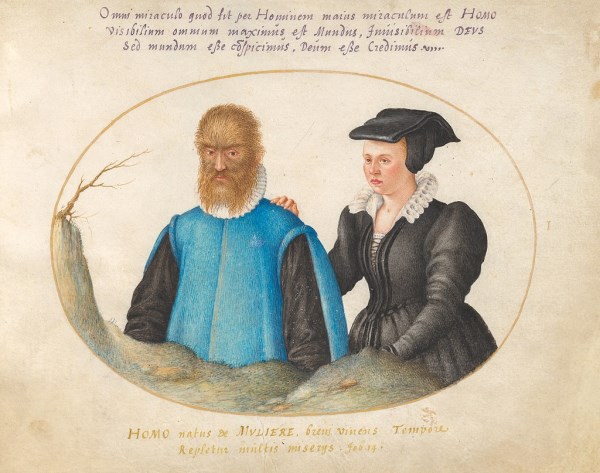 Omni miraculo quod fit per Hominem maius miraculum est HOMO
Visibilium omnium maximus est Mundus, Inuisibilium DEUS
Sed mundum eße cospicimus, Deum eße Credimus
HOMO natus de MVLIERE, breui viuens Tempore
Repletur multis miserijs Job 14